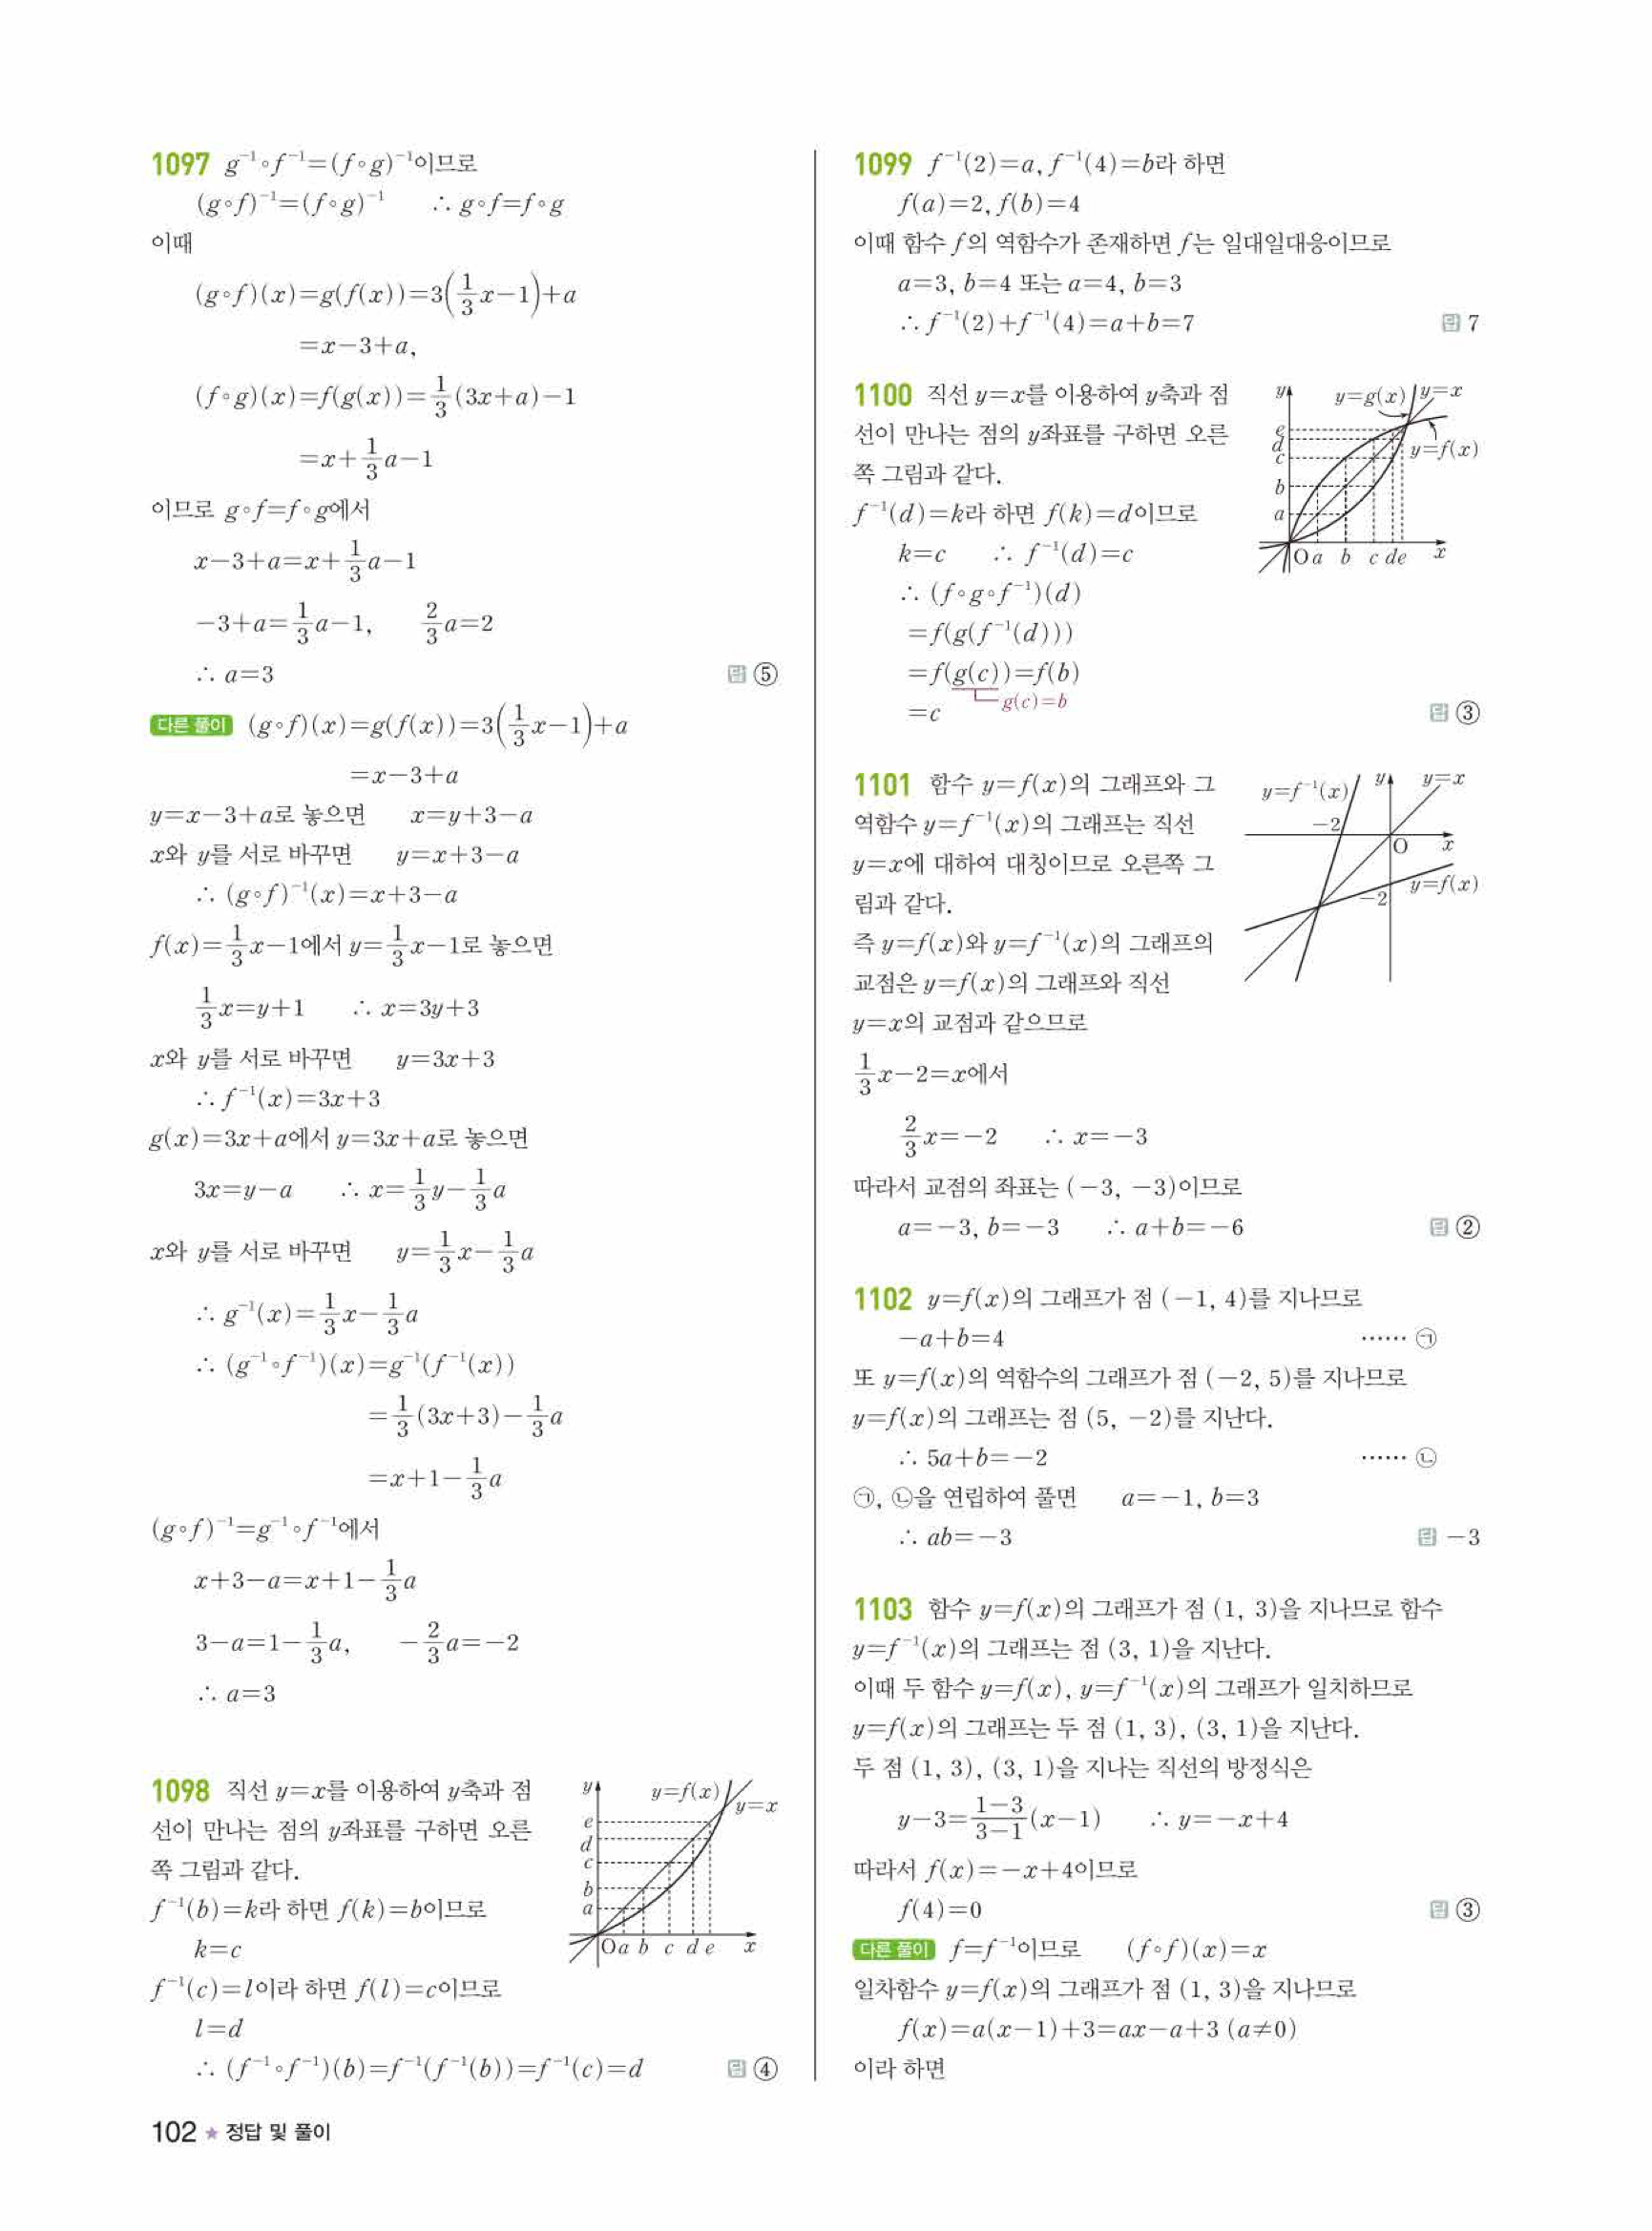 1097 g⁻¹∘f⁻¹=(f∘g)⁻¹이므로
(g∘f)⁻¹=(f∘g)⁻¹ ∴ g∘f=f∘g
이때
(g∘f)(x)=g(f(x))=3(1/3 x−1)+a
=x−3+a,
(f∘g)(x)=f(g(x))=1/3(3x+a)−1
=x+1/3 a−1
이므로 g∘f=f∘g에서
x−3+a=x+1/3 a−1
−3+a=1/3 a−1, 2/3 a=2
∴ a=3 답 ⑤
다른 풀이 (g∘f)(x)=g(f(x))=3(1/3 x−1)+a
=x−3+a
y=x−3+a로 놓으면 x=y+3−a
x와 y를 서로 바꾸면 y=x+3−a
∴ (g∘f)⁻¹(x)=x+3−a
f(x)=1/3 x−1에서 y=1/3 x−1로 놓으면
1/3 x=y+1 ∴ x=3y+3
x와 y를 서로 바꾸면 y=3x+3
∴ f⁻¹(x)=3x+3
g(x)=3x+a에서 y=3x+a로 놓으면
3x=y−a ∴ x=1/3 y−1/3 a
x와 y를 서로 바꾸면 y=1/3 x−1/3 a
∴ g⁻¹(x)=1/3 x−1/3 a
∴ (g⁻¹∘f⁻¹)(x)=g⁻¹(f⁻¹(x))
=1/3(3x+3)−1/3 a
=x+1−1/3 a
(g∘f)⁻¹=g⁻¹∘f⁻¹에서
x+3−a=x+1−1/3 a
3−a=1−1/3 a, −2/3 a=−2
∴ a=3
1098 직선 y=x를 이용하여 y축과 점
선이 만나는 점의 y좌표를 구하면 오른
쪽 그림과 같다.
f⁻¹(b)=k라 하면 f(k)=b이므로
k=c
f⁻¹(c)=l이라 하면 f(l)=c이므로
l=d
∴ (f⁻¹∘f⁻¹)(b)=f⁻¹(f⁻¹(b))=f⁻¹(c)=d 답 ④
y
y=f(x)
y=x
e
d
c
b
a
O a b c d e x
1099 f⁻¹(2)=a, f⁻¹(4)=b라 하면
f(a)=2, f(b)=4
이때 함수 f의 역함수가 존재하면 f는 일대일대응이므로
a=3, b=4 또는 a=4, b=3
∴ f⁻¹(2)+f⁻¹(4)=a+b=7 답 7
1100 직선 y=x를 이용하여 y축과 점
선이 만나는 점의 y좌표를 구하면 오른
쪽 그림과 같다.
f⁻¹(d)=k라 하면 f(k)=d이므로
k=c ∴ f⁻¹(d)=c
∴ (f∘g∘f⁻¹)(d)
=f(g(f⁻¹(d)))
=f(g(c))=f(b)
g(c)=b
=c 답 ③
y
y=g(x)
y=x
y=f(x)
e
d
c
b
a
O a b c d e x
1101 함수 y=f(x)의 그래프와 그
역함수 y=f⁻¹(x)의 그래프는 직선
y=x에 대하여 대칭이므로 오른쪽 그
림과 같다.
즉 y=f(x)와 y=f⁻¹(x)의 그래프의
교점은 y=f(x)의 그래프와 직선
y=x의 교점과 같으므로
1/3 x−2=x에서
2/3 x=−2 ∴ x=−3
따라서 교점의 좌표는 (−3, −3)이므로
a=−3, b=−3 ∴ a+b=−6 답 ②
y=f⁻¹(x)
y
y=x
−2
O
x
y=f(x)
−2
1102 y=f(x)의 그래프가 점 (−1, 4)를 지나므로
−a+b=4 …… ㉠
또 y=f(x)의 역함수의 그래프가 점 (−2, 5)를 지나므로
y=f(x)의 그래프는 점 (5, −2)를 지난다.
∴ 5a+b=−2 …… ㉡
㉠, ㉡을 연립하여 풀면 a=−1, b=3
∴ ab=−3 답 −3
1103 함수 y=f(x)의 그래프가 점 (1, 3)을 지나므로 함수
y=f⁻¹(x)의 그래프는 점 (3, 1)을 지난다.
이때 두 함수 y=f(x), y=f⁻¹(x)의 그래프가 일치하므로
y=f(x)의 그래프는 두 점 (1, 3), (3, 1)을 지난다.
두 점 (1, 3), (3, 1)을 지나는 직선의 방정식은
y−3=(1−3)/(3−1)(x−1) ∴ y=−x+4
따라서 f(x)=−x+4이므로
f(4)=0 답 ③
다른 풀이 f=f⁻¹이므로 (f∘f)(x)=x
일차함수 y=f(x)의 그래프가 점 (1, 3)을 지나므로
f(x)=a(x−1)+3=ax−a+3 (a≠0)
이라 하면
102 ★ 정답 및 풀이